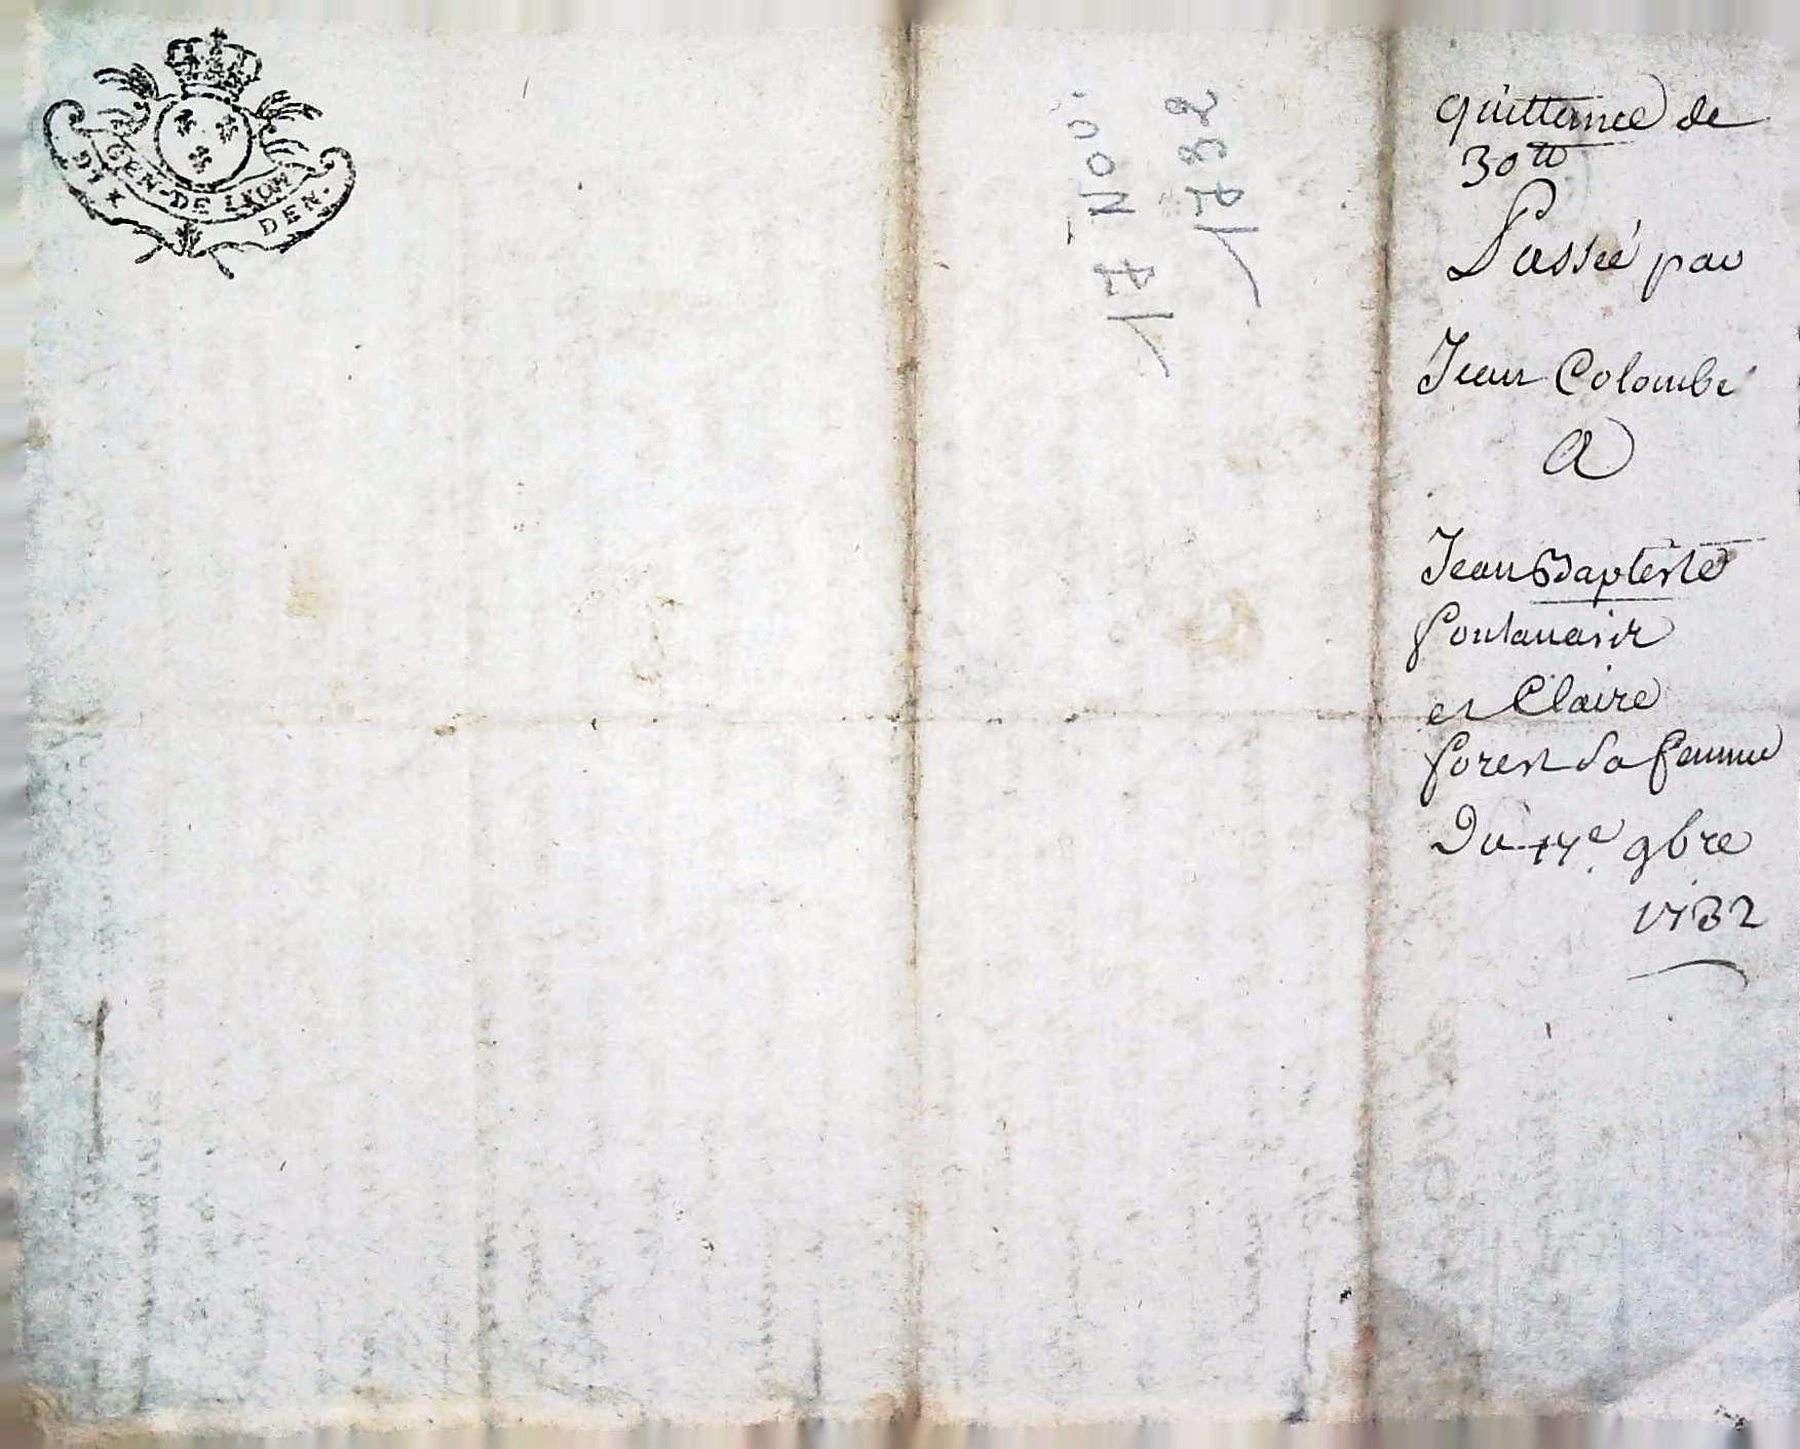 GEN. DE LYON
DIX DEN.
17 Nov.
1732
quittance de
30tt
Passée par
Jean Colombe
A
Jean Baptiste
fontanasir
et Claire
forest Sa femme
Du 17e 9bre
1732